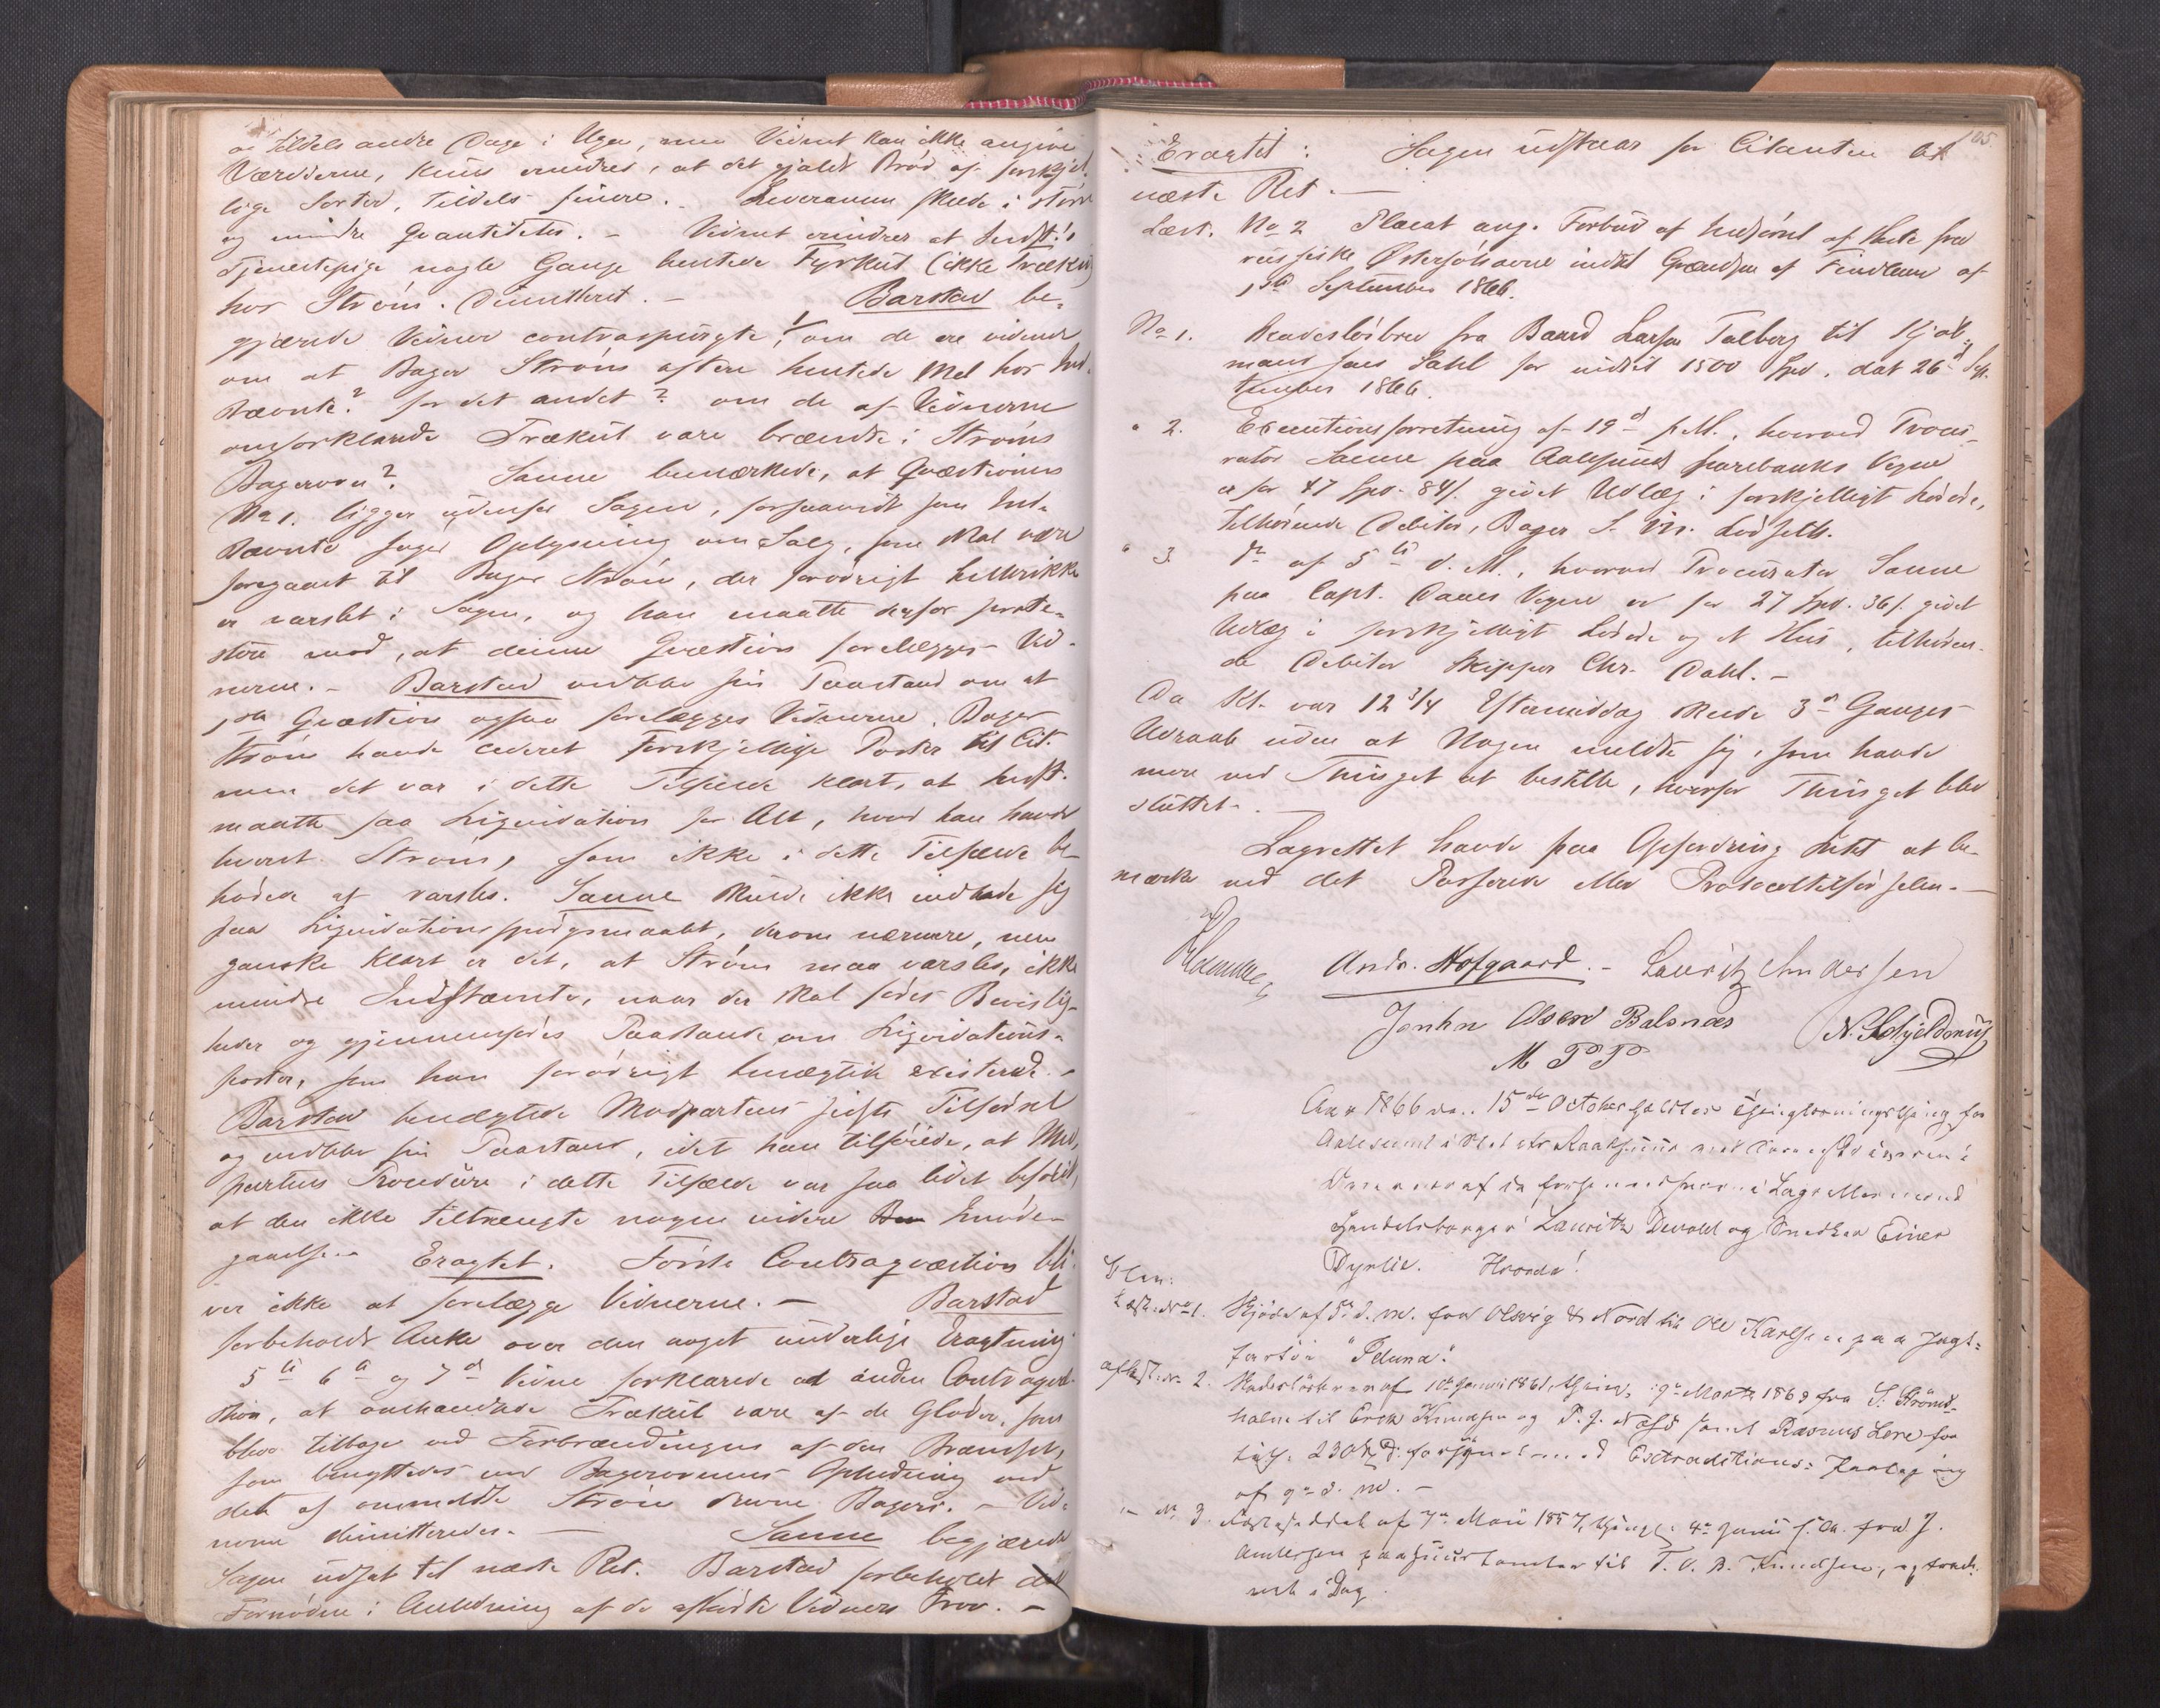 og tildels andre Dage i Ugen, men Vidnet kan ikke angive
Værdierne, kuns erindres, at det gjaldt Brød af forskjel-
lige Sorter, tildels finere. Leverancen skede i større
og mindre Qvantiteter. – Vidnet erindrer at Indst:s
Tjenestepige nogle Gange hentede Fyrkul (ikke Trækul)
hos Strøm. Dimitteret. – Barstad be-
gjærede Vidner contraspurgte: 1/ om de ere vidende
om at Bager Strøm oftere hentede Mel hos Ind-
stævnte? for det andet? om de af Vidnerne
omforklarede Trækul vare brændte i Strøms
Bagerovn? Sanne bemærkede, at Qvæstionen
No 1. ligger udenfor Sagen, forsaavidt som Ind-
stævnte søger Oplysning om Salg, som skal være
foregaaet til Bager Strøm, der forøvrigt hellerikke
er varslet i Sagen, og han maatte derfor prote-
stere mod, at denne Qvæstion forelægges Vid-
nerne. – Barstad vedblev sin Paastand om at
1ste Qvæstion ogsaa forelægges Vidnerne. Bager
Strøm havde cederet forskjellige Poster til Cit.
men det var i dette Tilfælde klart, at Indst.
maatte faa Liqvidation for Alt, hvad han havde
leveret Strøm, som ikke i dette Tilfælde be-
høvede at varsles. Sanne skulde ikke indlade sig
paa Liqvidationsspørgsmaalet, derom nærmere, men
ganske klart er det, at Strøm maa varsles, ikke
mindre Indstævnte, naar der skal føres Bevislig-
heder og gjennemføres Paastand om Liqvidations-
poster, som han forøvrigt benægtede existerede. –
Barstad benægtede Modpartens sidste Tilførsel
og vedblev sin Paastand, idet han tilføiede, at Mod-
partens Procedure i dette Tilfælde var saa lidet beføiet,
at den ikke tiltrængte nogen videre Imøde-
gaaelse. – Eragtet. Første Contraqvæstion bli-
ver ikke at forelægge Vidnerne. – Barstad
forbeholdt Anke over den noget underlige Eragtning
5te 6te og 7de Vidne forklarede ad anden Contraqvæ-
stion, at omhandlede Trækul vare af de Gløder, som
blev tilbage ved Forbrændingen af den Brændsel,
som benyttedes ved Bagerovnens Ophedning ved
det af ommeldte Strøm drevne Bageri. – Vid-
nerne dimitteredes. – Sanne begjærede
Sagen udsat til næste Ret. Barstad forbeholdt
Fornødne i Anledning af de afhørte Vidners Prov. –
105.
Eragtet: Sagen udstaar for Citanten til
næste Ret. –
Læst. No 2 Placat ang. Forbud af Indførsel af fra
russiske Østersøhavne indtil Grændsen af Findland af
1ste September 1866.
No 1. Skadesløsbrev fra Baard Larsen Talberg til Kjøb-
mand Dahl for indtil 1500 Spd. dat 26d Sep-
tember 1866.
" 2. Executionsforretning af 19d f. M., hvorved Procu-
rator Sanne paa Aalesunds Sparebanks Vegne
er for 47 Spd. 84 s. gjort Udlæg i forskjelligt Løsøre,
tilhørende Debitor, Bager S.
" 3. Do af 5te d. M., hvorved Procurator Sanne
paa Capt. Vegne er for 27 Spd. 36 s. gjort
Udlæg i forskjelligt Løsøre og et Hus, tilhøren-
de Debitor Skipper Chr. Dahl. –
Da Kl. var 12 3/4 Eftermiddag skede 3d Ganges
Udraab uden at Nogen meldte sig, som havde
mere ved Thinget at bestille, hvorfor Thinget blev
sluttet. –
Lagrettet havde paa Opfordring Intet at be-
mærke ved det Passerede eller Protocoltilførselen. –
Andr. Hofgaard. – Lauritz Andersen
John Olsen Balsnæs N. Schjeldrup
M P P
Aar 1866 den 15de October holdtes Thinglæsningsthing for
Aalesund i Stedets Raadhuus med
Overværelse af de Lagrettesmænd
Handelsborger Lauritz Devold og Snedker Einer
Dyrlie. Hvorda!
Læst No 1. Skjøde af 5te d. M. fra Olsvig & Nord til Ole Karlsen paa Jagt-
fartøi "Iduna."
aflæst No 2. Skadesløsbrev af 10de Januar 1861, thinl. 9de Marts 1869 fra S. Strøms-
holm til Erik Knudsen og P. J. Næss samt Rasmus Lere for
230 Spd. forsynet med Extraditions-Paategning
af 9de d. M. –
" No 3. Fæsteseddel af 7de Mai 1857, thingl: 4de Juni s. A. fra J.
Andersen paa Huustomten til T. O. B. Knudsen,
i Dag.